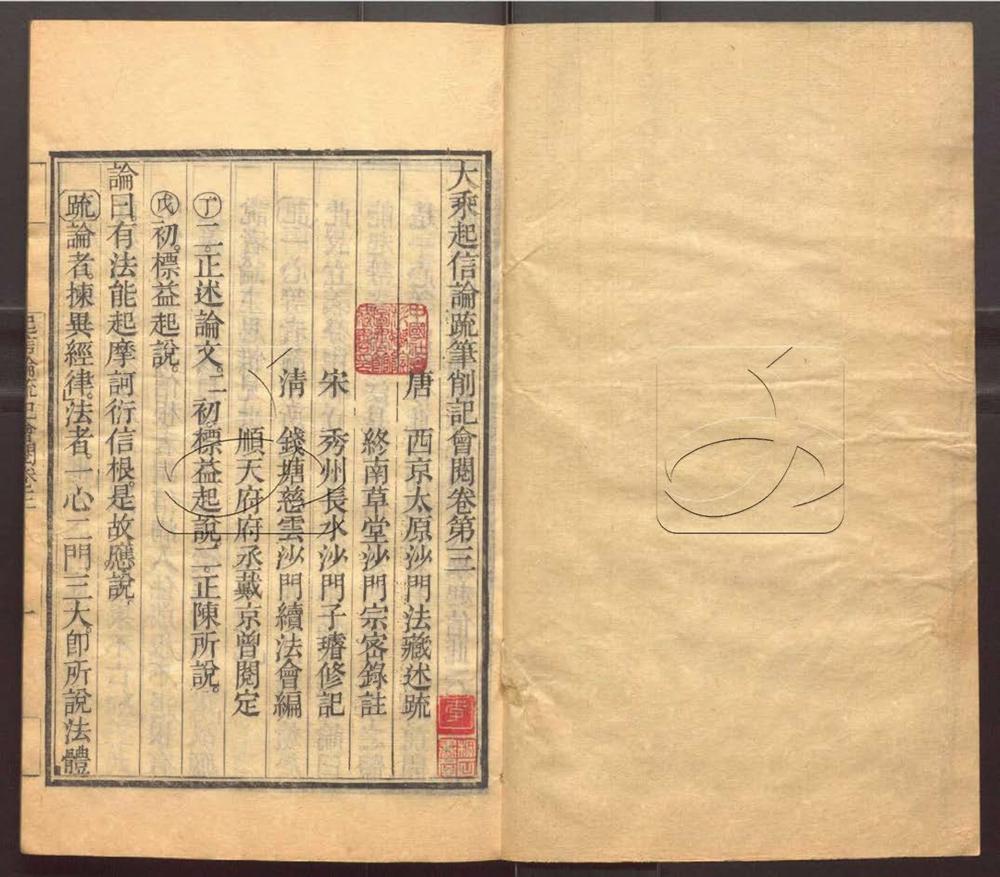 大乘起信論疏筆削記會閱卷第三
唐　西京太原沙門法藏述疏
終南草堂沙門宗密錄註
宋　秀州長水沙門子璿修記
清　錢塘慈雲沙門續法會編
順天府府丞戴京曾閱定
丁二。正述論文。二。初。標益起說。二。正陳所說。
戊初。標益起說。
論曰。有法能起摩訶衍信根。是故應說。
疏論者。揀異經律。法者。一心二門三大。即所說法體